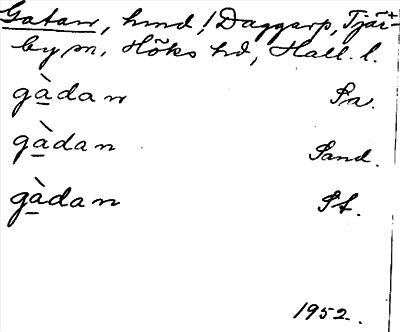 Gatan, hmd! Daggarp, Tjär-
by sn, Höks hd, Hall. l.
gàdan Pa.
gàdan Sand.
gàdan St.
1952.